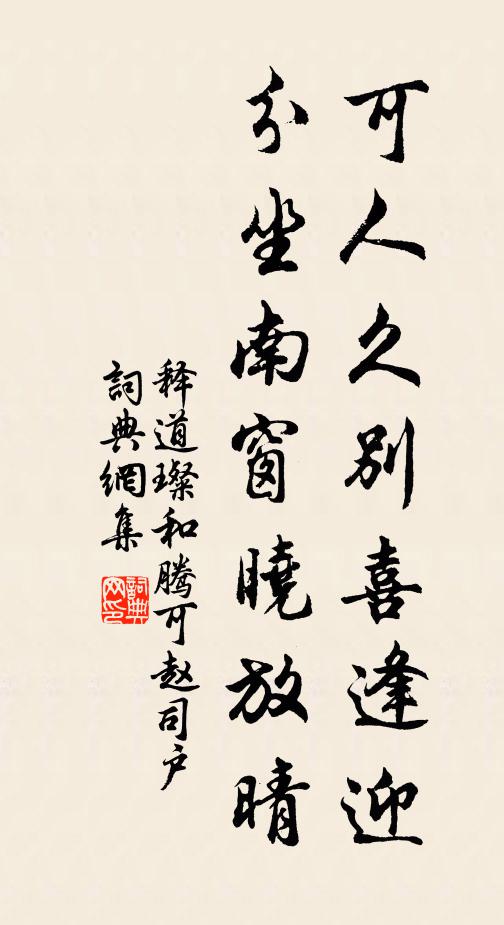 可人久别喜逢迎
分坐南窗曉放晴
释道璨和腾可赵司户
詞典網集
詞典網印